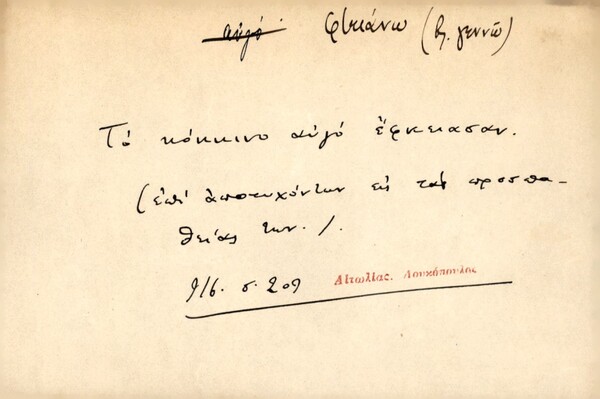 αὐγό φκιάνω (β. γεννῶ)
Τὸ κόκκινο αὐγό ἔφκειασαν.
(ἐπὶ ἀποτυχόντων εἰς τὰς προσπα-
θείας των./.
916. σ. 209 Αἰτωλίας. Λουκόπουλος